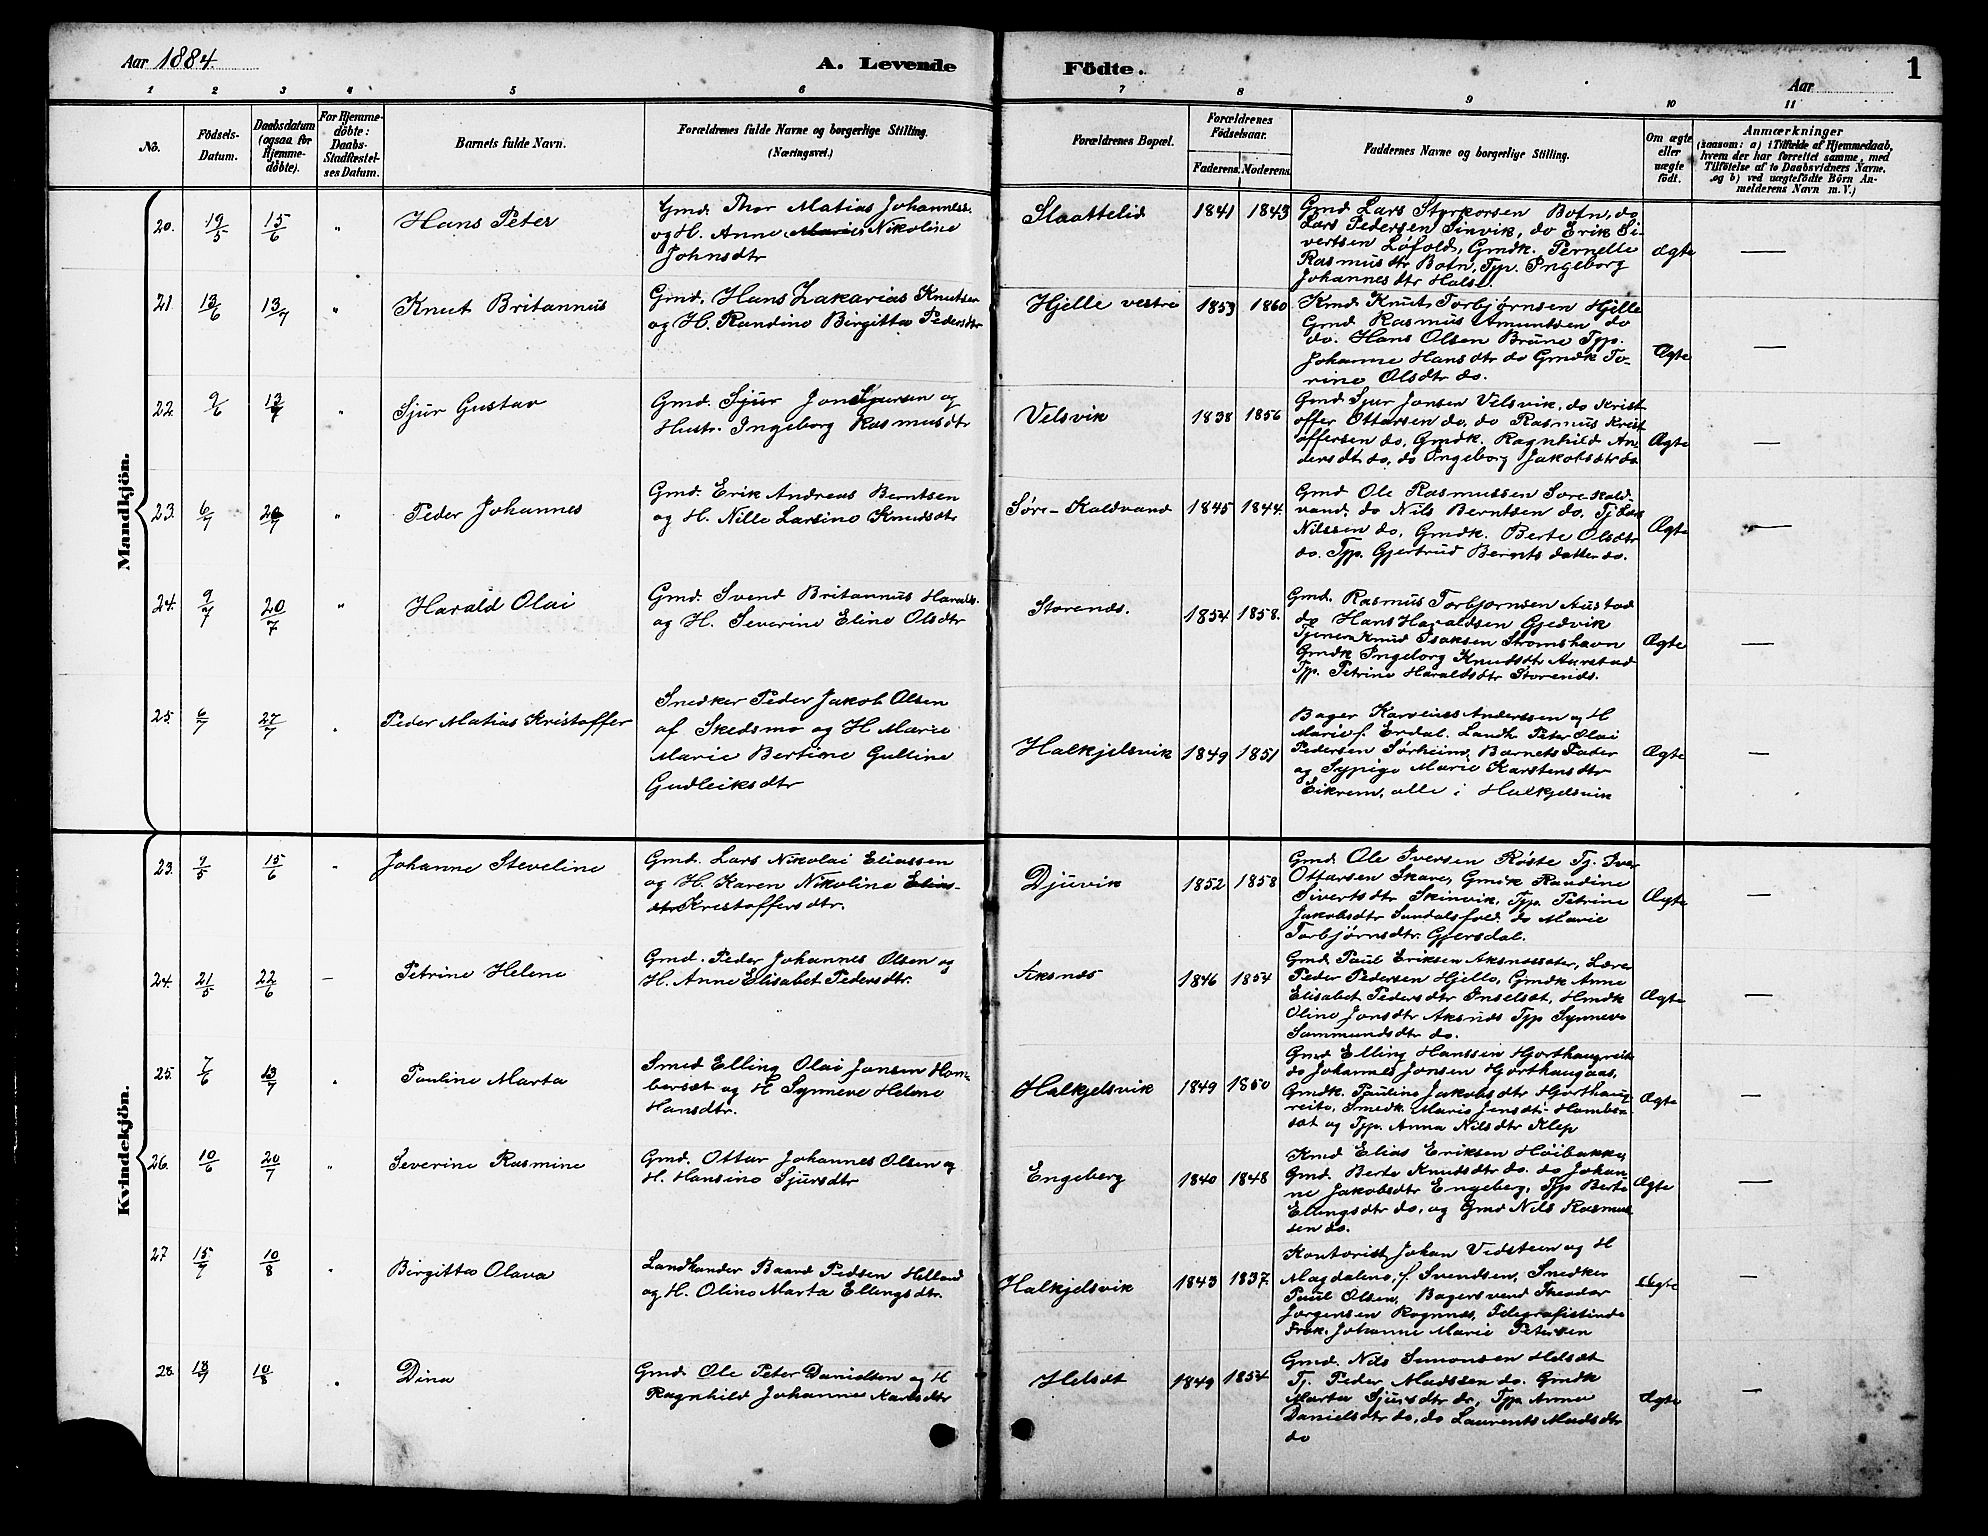 Aar 1884.
A. Levende
Födte.
Aar
1
1 2 3 4 5 6 7 8 9 10 11
No.
Födsels-
Datum.
Daabsdatum
(ogsaa for
Hjemme-
döbte).
For Hjemme-
döbte:
Daabs-
Stadfæstel-
ses Datum.
Barnets fulde Navn.
Forældrenes fulde Navne og borgerlige Stilling.
(Næringsvei.)
Forældrenes Bopæl.
Forældrenes
Födselsaar.
Faderens. Moderens.
Faddernes Navne og borgerlige Stilling.
Om ægte
eller
uægte
födt.
Anmærkninger
(saasom: a) i Tilfælde af Hjemmedaab,
hvem der har forrettet samme, med
Tilföielse af to Daabsvidners Navne,
og b) ved uægtefödte Börn An-
melderens Navn m. V.)
Mandkjön.
20. 19/5 15/6 " Hans Peter
Gmd. Thor Matias Johanness.
og H. Anne Marie Nikoline
Johnsdtr
Slaattelid 1841 1843
Gmd Lars Styrkorsen Botn, do
Lars Pedersen Sinvik, do Erik Si-
vertsen Løfold, Gmdk Pernelle
Rasmusdtr Botn, Tjp. Ingeborg
Johannesdtr Halse.
Ægte —
21. 13/6 13/7 " Knut Britannus
Gmd. Hans Zakarias Knutsen
og H. Randine Birgitta Pedersdtr
Hjelle vestre 1853 1860
Kmd. Knut Torbjørnsen Hjelle
Gmd Rasmus Amundsen do
do. Hans Olsen Brune Tjp.
Johanne Hansdtr do Gmdk To-
rine Olsdtr do.
Ægte —
22. 9/6 13/7 " Sjur Gustav
Gmd. Sjur Jon Sjursen og
Hustr. Ingeborg Rasmusdtr
Velsvik 1838 1856
Gmd Sjur Jonsen Velsvik, do Krist
offer Ottarsen do, do Rasmus Krist
offersen do, Gmdk. Ragnhild An-
dersdtr do, do Ingeborg Jakobsdtr do
Ægte —
23. 6/7 20/7 " Peder Johannes
Gmd. Erik Andreas Berntsen
og H. Nille Larsine Knudsdtr
Søre-Kaldvand 1845 1844.
Gmd Ole Rasmussen Søre-Kald-
vand, do Nils Berntsen do, Tj Lars
Nilssen do, Gmdk. Berte Olsdtr
do. Tjp. Gjertrud Bernts datter do.
Ægte —
24. 9/7 20/7 " Harald Olai
Gmd. Svend Britannus Haralds.
og H. Severine Eline Olsdtr
Storenes. 1854 1858.
Gmd. Rasmus Torbjornsen Austad
do Hans Haraldsen Gjedvik
Tjener Knud Isaksen Stromshavn
Gmdk Ingeborg Knudsdtr Aurstad
Tjp. Petrine Haraldsdtr Storenes.
Ægte —
25 6/7 27/7 " Peder Matias Kristoffer
Snedker Peder Jakob Olsen
af Skedsmo og H Marie
Marie Bertine Gulline
Gudleiksdtr
Halkjelsvik 1849 1851
Bager Karolius Anderssen og H
Marie f. Erdal. Landh Peter Olai
Pedersen Sørheim, Barnets Fader
og Sypige Marie Karstensdtr
Eikrem, alle i Halkjelsvik
Ægte —
Kvindekjön.
23. 9/5 15/6 " Johanne Steveline
Gmd. Lars Nikolai Eliassen
og H. Karen Nikoline Elias-
dtr Kristoffersdtr.
Djuvik 1852 1858
Gmd. Ole Iversen Røste Tj. Iver
Ottarsen Skare, Gmdk Randine
Sivertsdtr Skinvik, Tjp. Petrine
Jakobsdtr Sundalsfoed. do Marie
Torbjørnsdtr. Gjersdal.
Ægte —
24. 21/5 22/6 — Petrine Helene
Gmd. Peder Johannes Olsen og
H. Anne Elisabet Pedersdtr.
Aksnes 1846 1854
Gmd Paul Eriksen Aksnessæter, Lærer
Peder Pedersen Hjelle, Gmdk Anne
Elisabet Pedersdtr Inselset, Hmdk
Oline Jonsdtr Aksnes Tjp Synneve
Sammundsdtr do.
Ægte —
25. 7/6 13/7 " Pauline Marta
Smed Elling Olai Jonsen Ham-
berset og H Synneve Helene
Hansdtr.
Halkjelsvik 1849 1850
Gmd Elling Hanssen Hjorthaugreit
do Johannes Jonsen Hjorthaugaas,
Gmdk. Pauline Jakobsdtr Hjorthaug
reite, Smedk. Marie Jensdtr Hamber-
set og Tjp. Anna Nilsdtr Klep
Ægte —
26. 10/6 20/7 " Severine Rasmine
Gmd. Ottar Johannes Olsen og
H. Hansine Sjursdtr
Engeberg 1840 1848
Kmd Elias Eriksen Höibakke,
Gmd. Berte Knudsdtr do. do Johan-
ne Jakobsdtr Engeberg, Tjp Berte
Ellingsdtr do, og Gmd Nils Rasmus
sen do.
Ægte —
27 15/7 10/8 " Birgitte Olava
Landhandler Baard Pedsen Helland
og H. Oline Marta Ellingsdtr.
Halkjelsvik 1843 1837.
Kontorist Johan Vedsteen og H
Magdalene, f. Svendsen, Snedker
Paul Olsen, Bagersvend Theodor
Jørgensen Rognnes, Telegrafistinde
Frøk. Johanne Marie Petersen
Ægte —
28. 18/7 10/8 " Dina
Gmd. Ole Peter Danielsen og H
Ragnhild Johanne Karlsdtr
Helset 1849 1854
Gmd. Nils Simonsen Helset
Tj. Peder Madssen do. Gmdk
Marta Sjursdtr do, Tjp Anna
Danielsdtr do, do Laurents Madsdtr
do
Ægte —